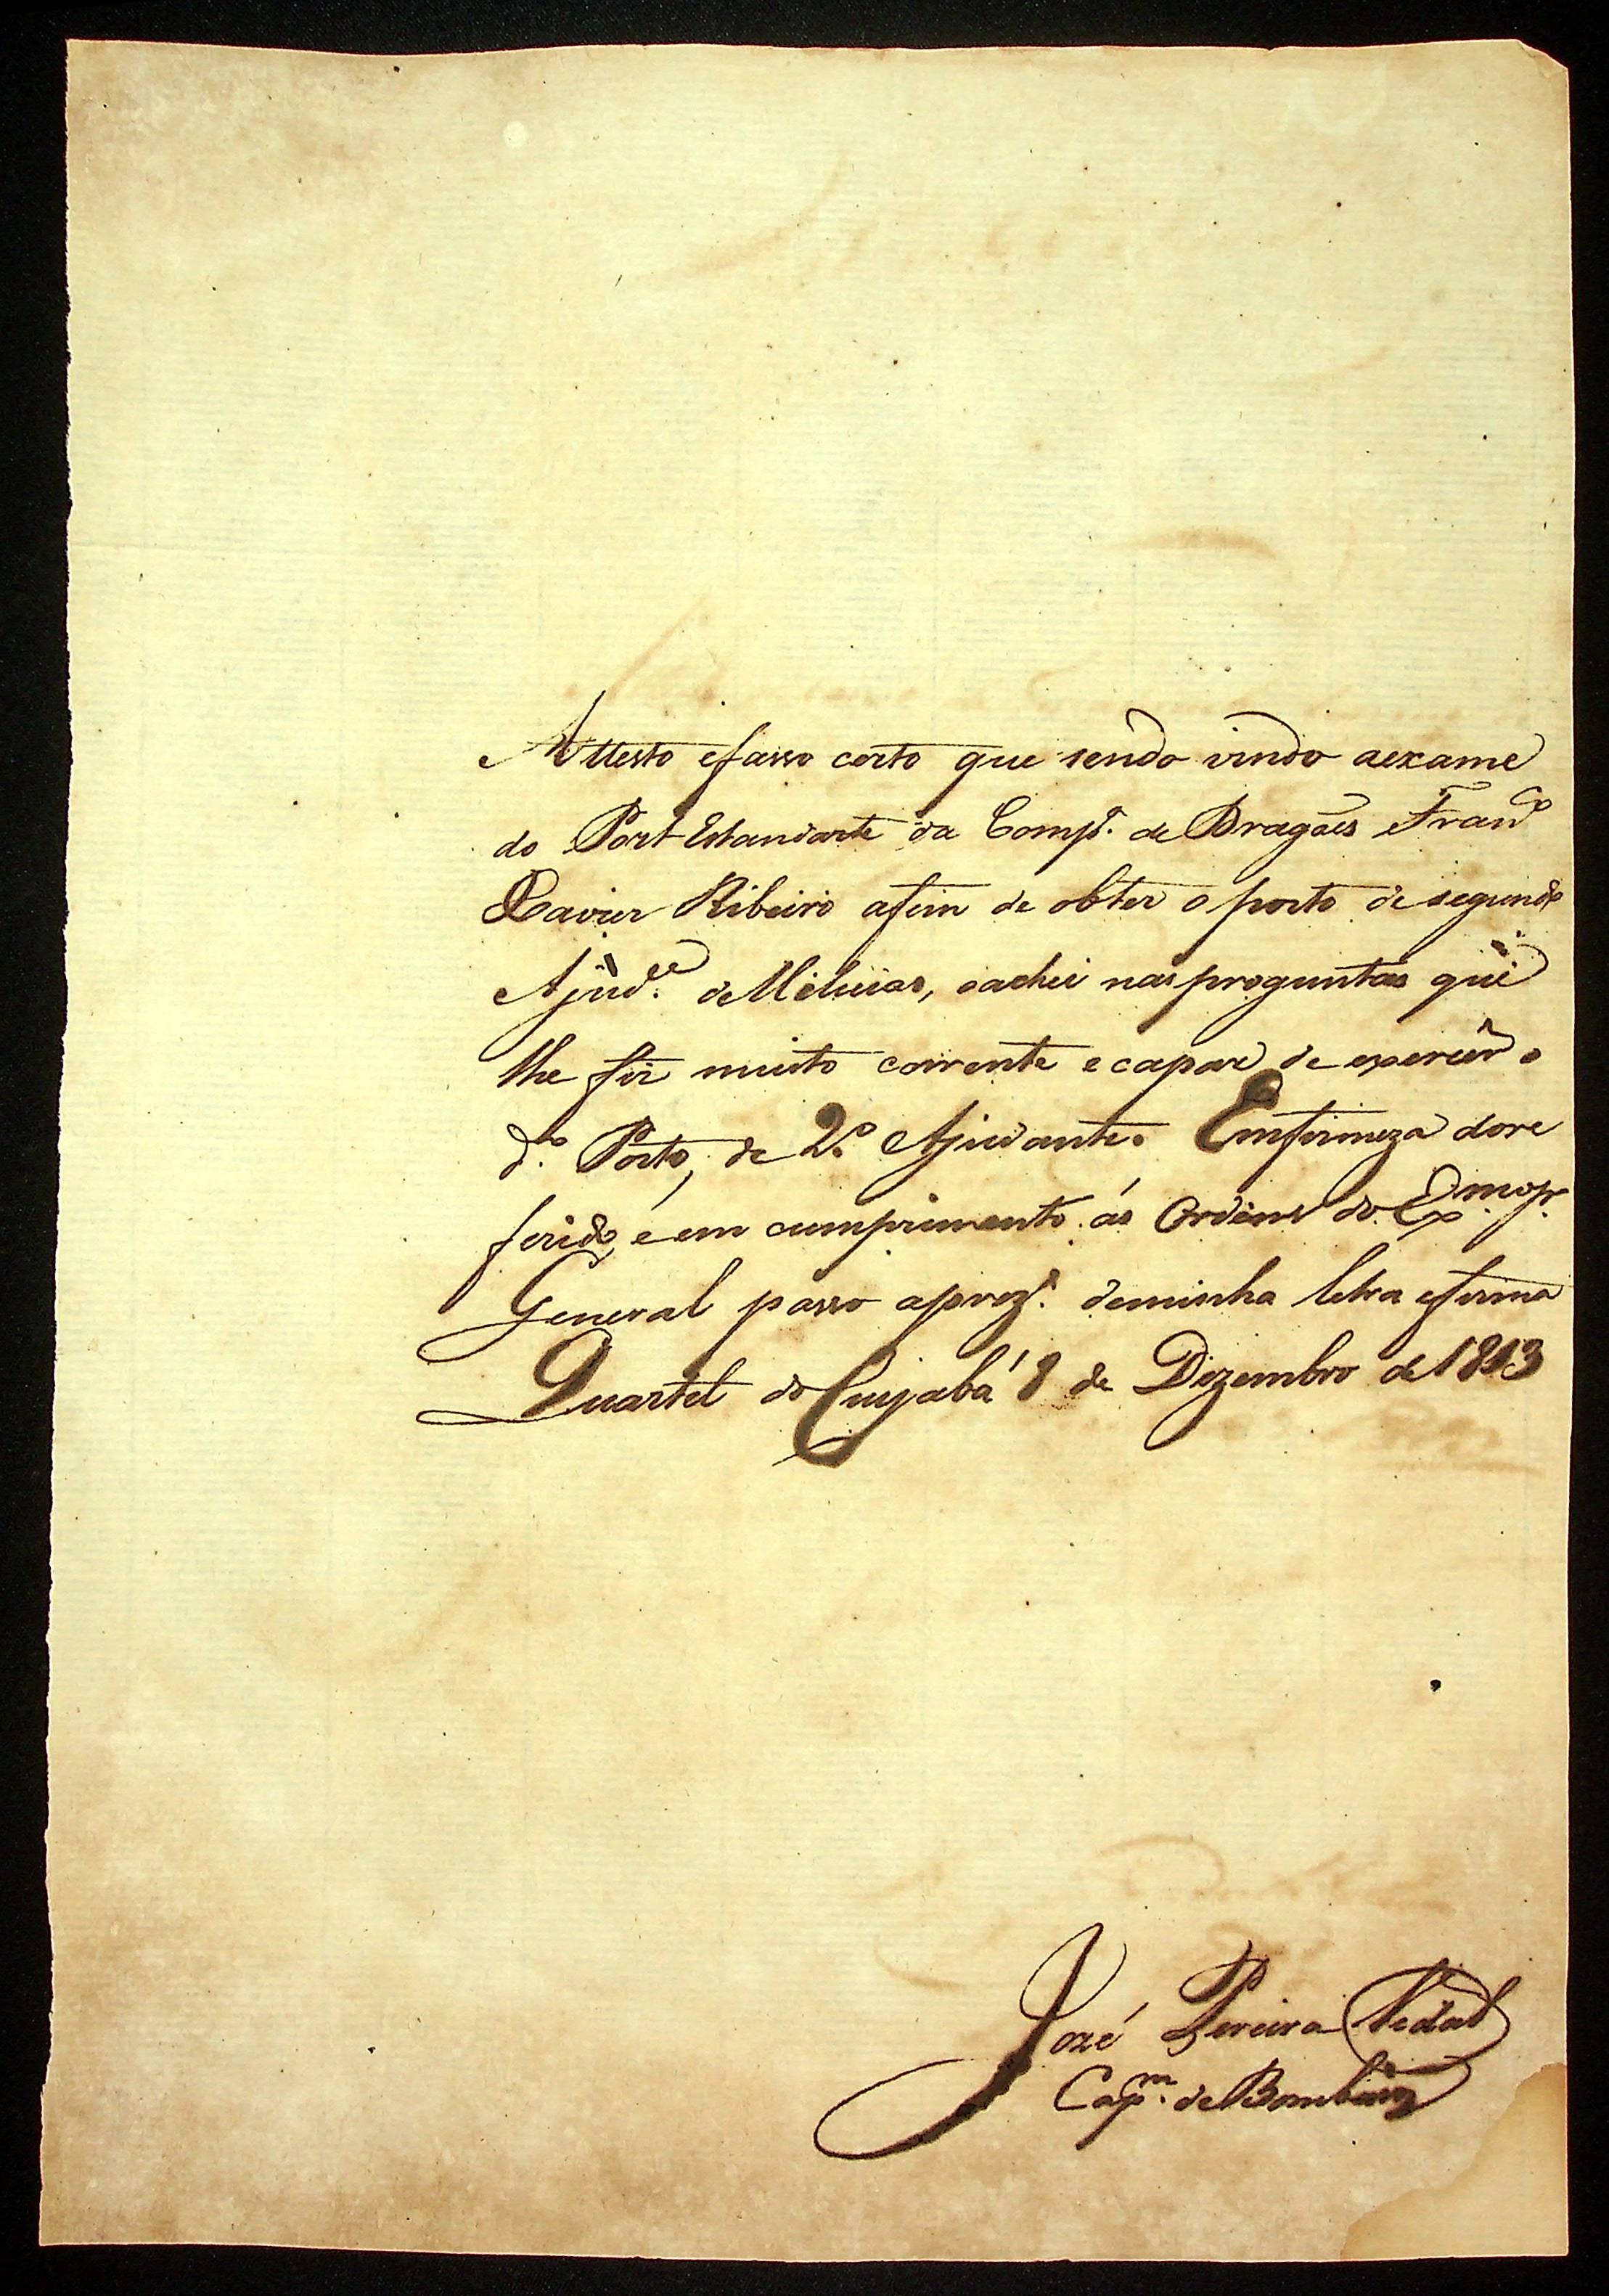 Attesto efasso certo que sendo vindo aexame
do Port Estandarte da Comp.ª de Dragoẽs Fran.co
Xavier Ribeiro afim de obter o posto de segundo
Ajud.e de Milicias, oachei nas proguntas que
lhe fiz muito corrente e capaz de exercer o
d.º Posto, de 2.º Ajudante. Emfirmeza dore
ferido, e em cumprimento ás Ordens do Ex.mo Sr.
General passo aprez.e deminha letra efirma
Quartel do Cuyabá 8 de Dezembro de 1813
José Pereira Vidal
Cap.m de Bombeiros